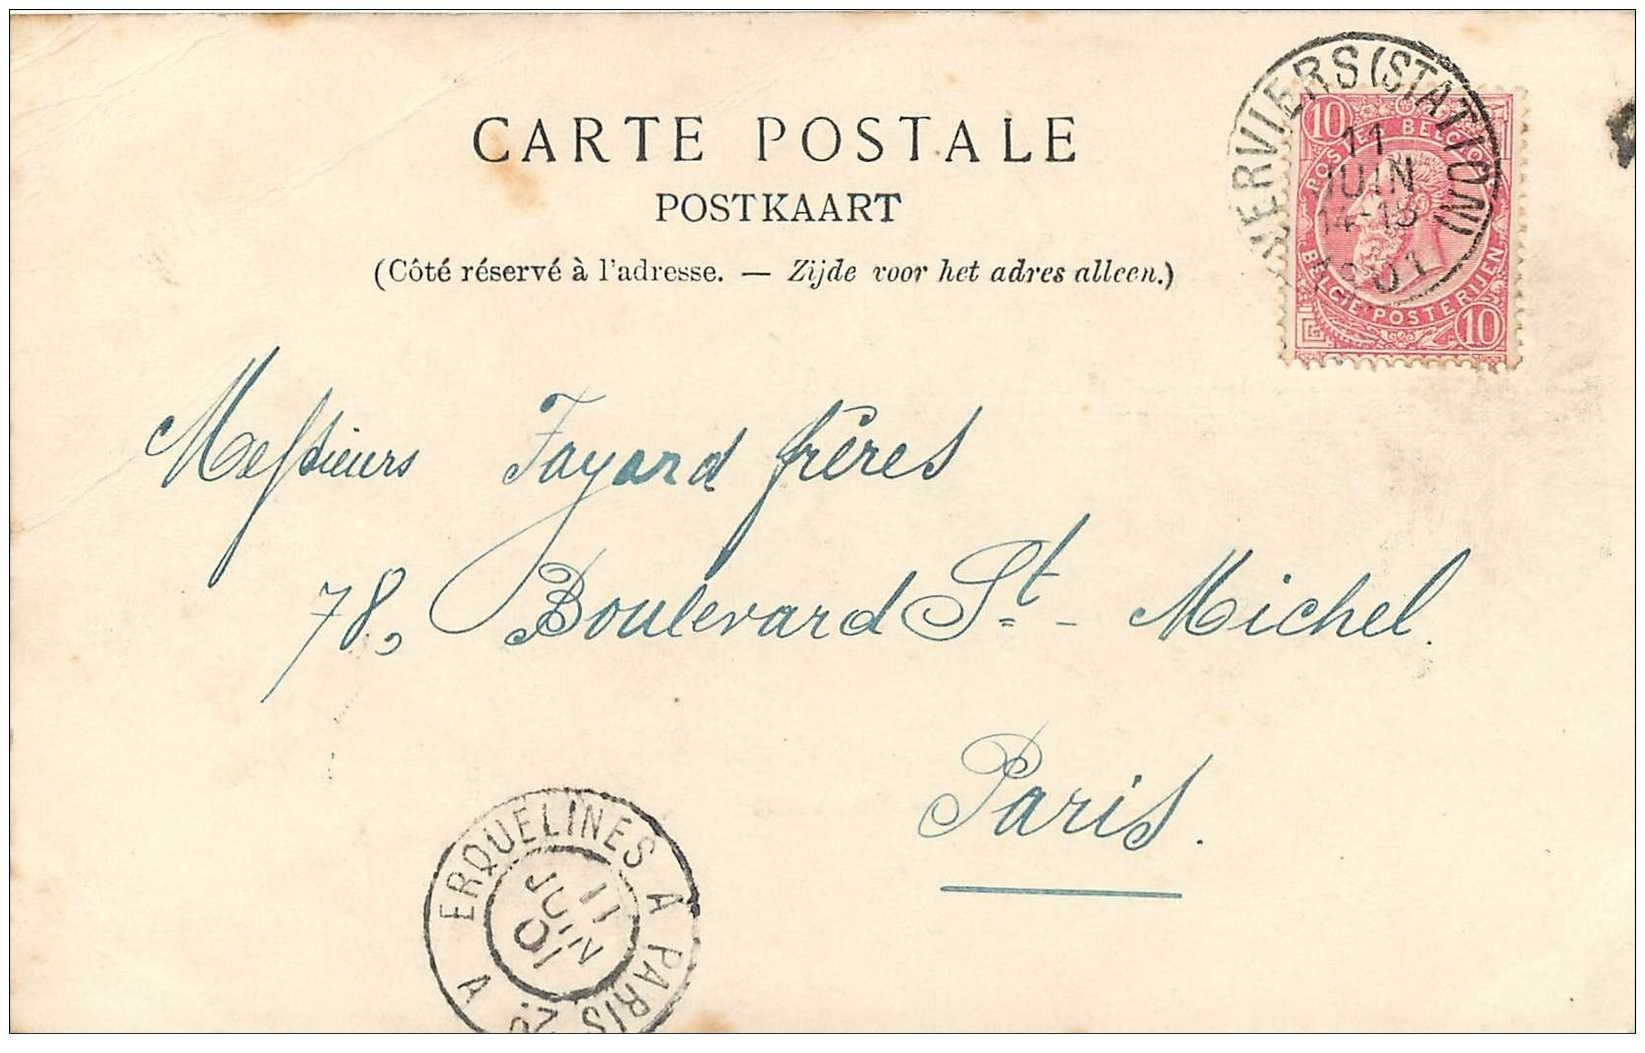 CARTE POSTALE
POSTKAART
(Côté réservé à l'adresse. — Zijde voor het adres alleen.)
VERVIERS (STATION)
11
JUIN
1901
10
POSTES BELGIQUE
BELGIE POSTERIJEN
10
Messieurs Fayard frères
78, Boulevard St - Michel.
Paris.
ERQUELINES A PARIS
11
JUIN
01